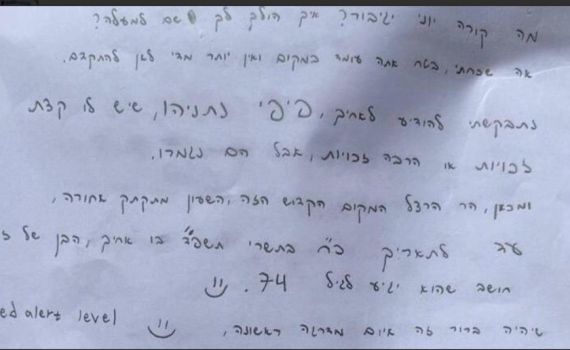 מה קורה יוני גיבור? איך הולך לך שם למעלה?
אה שכחתי, בטח אתה עומד במקום ואין יותר מדי לאן להתקדם.
נתבקשתי להודיע לאחיך, פיפי נתניהו, שיש לו קצת
זכויות או הרבה זכויות, אבל הם נגמרו.
ומכאן, הר הרצל המקום הקדוש הזה, השעון מתקתק אחורה,
עד לתאריך כ"ח בתשרי תשפ"ד בו אחיך, הבן של
חושב שהוא יגיע לגיל 74.
שיהיה ברור זה איום מדרגה ראשונה, alert level